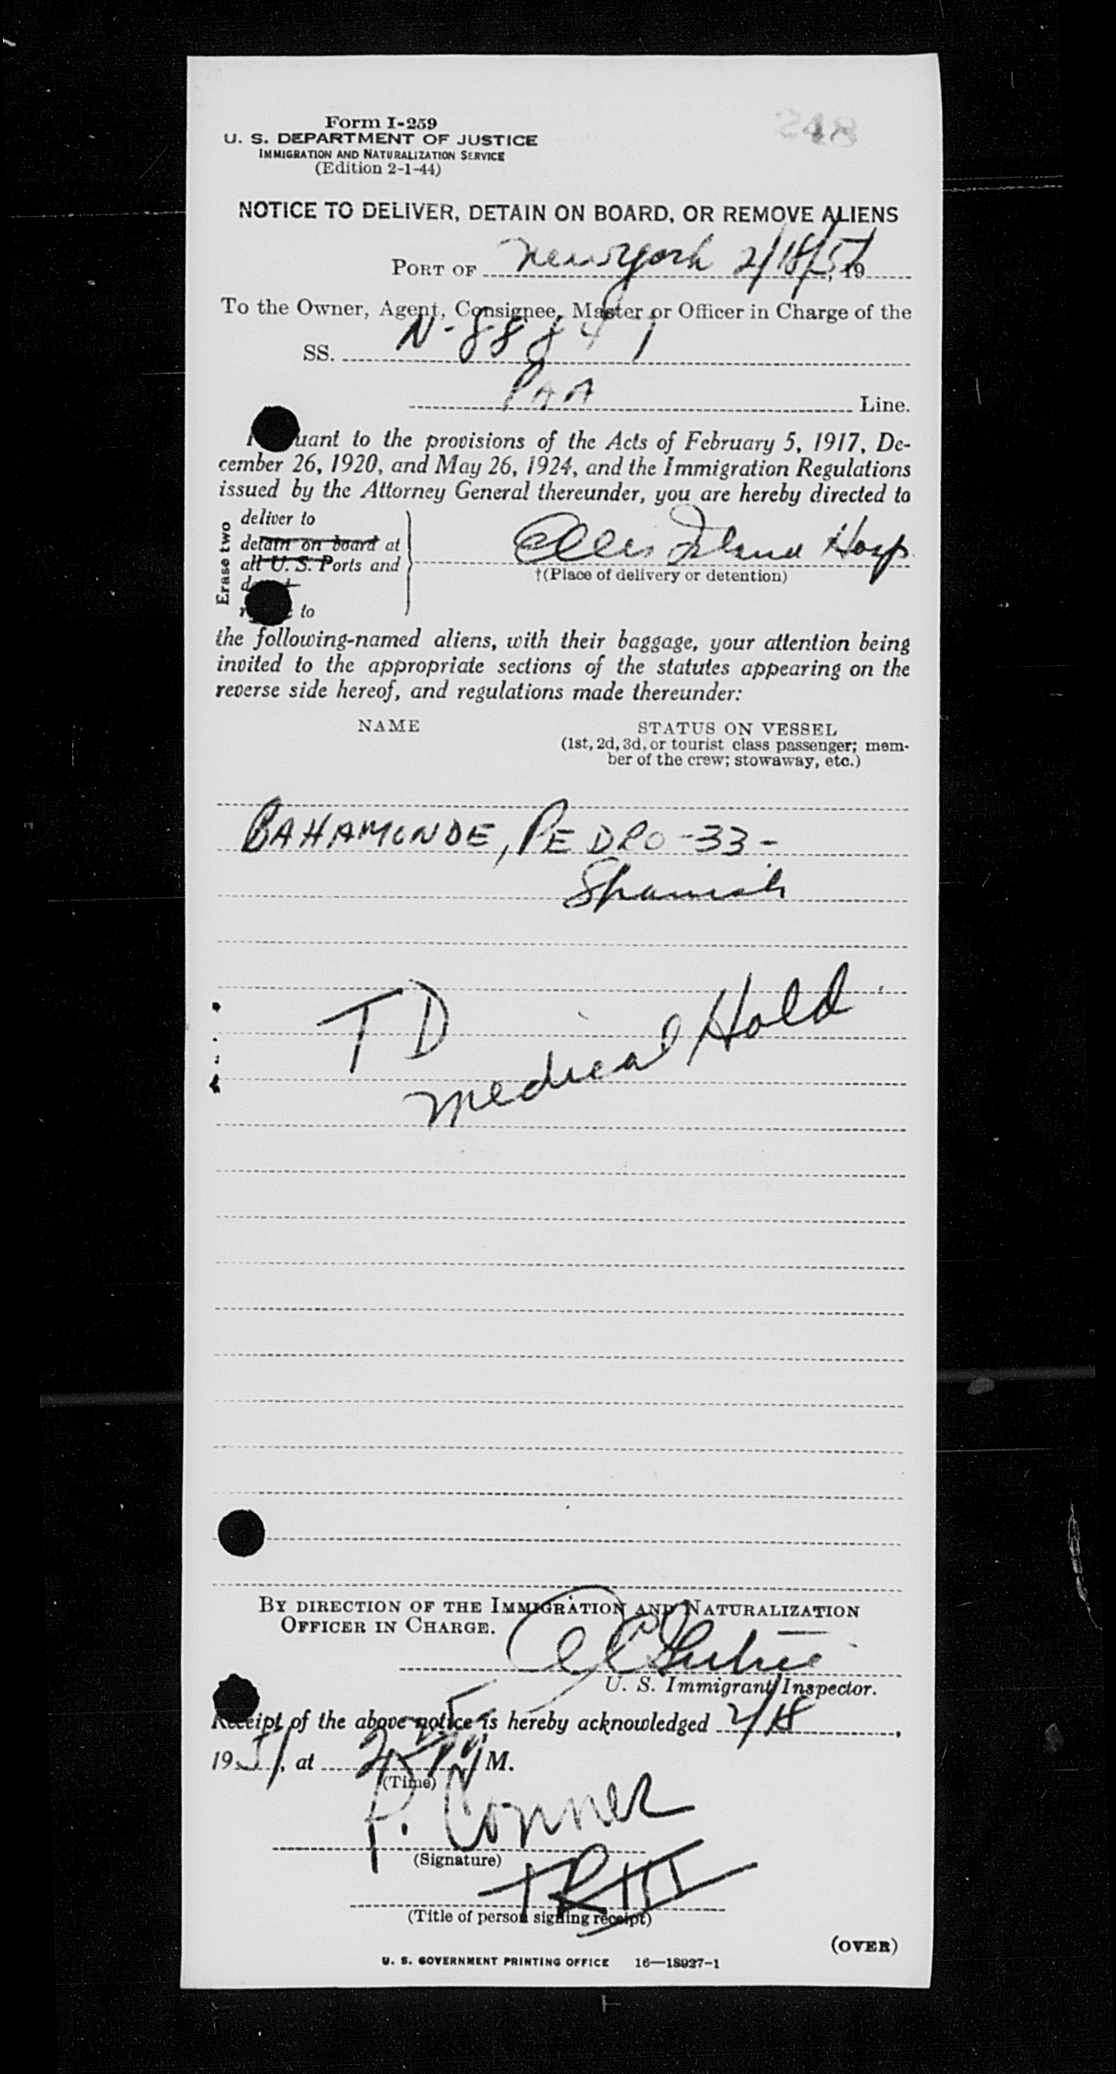 Form I-259
248
U. S. DEPARTMENT OF JUSTICE
IMMIGRATION AND NATURALIZATION SERVICE
(Edition 2-1-44)
NOTICE TO DELIVER, DETAIN ON BOARD, OR REMOVE ALIENS
PORT OF New York 2/18/51, 19
To the Owner, Agent, Consignee, Master or Officer in Charge of the
SS. N-88841
PAA Line.
uant to the provisions of the Acts of February 5, 1917, De-
cember 26, 1920, and May 26, 1924, and the Immigration Regulations
issued by the Attorney General thereunder, you are hereby directed to
Erase two
deliver to
detain on board at
all U. S. Ports and
to
Ellis Island Hosp
†(Place of delivery or detention)
the following-named aliens, with their baggage, your attention being
invited to the appropriate sections of the statutes appearing on the
reverse side hereof, and regulations made thereunder:
NAME
STATUS ON VESSEL
(1st, 2d, 3d, or tourist class passenger; mem-
ber of the crew; stowaway, etc.)
BAHAMONDE, PEDRO -33-
Spanish
TD
Medical Hold
BY DIRECTION OF THE IMMIGRATION AND NATURALIZATION
OFFICER IN CHARGE.
U. S. Immigrant Inspector.
Receipt of the above notice is hereby acknowledged 2/18,
1951, at M.
(Time)
P. Conner
(Signature)
(Title of person signing receipt)
(OVER)
U. S. GOVERNMENT PRINTING OFFICE 16—18927-1